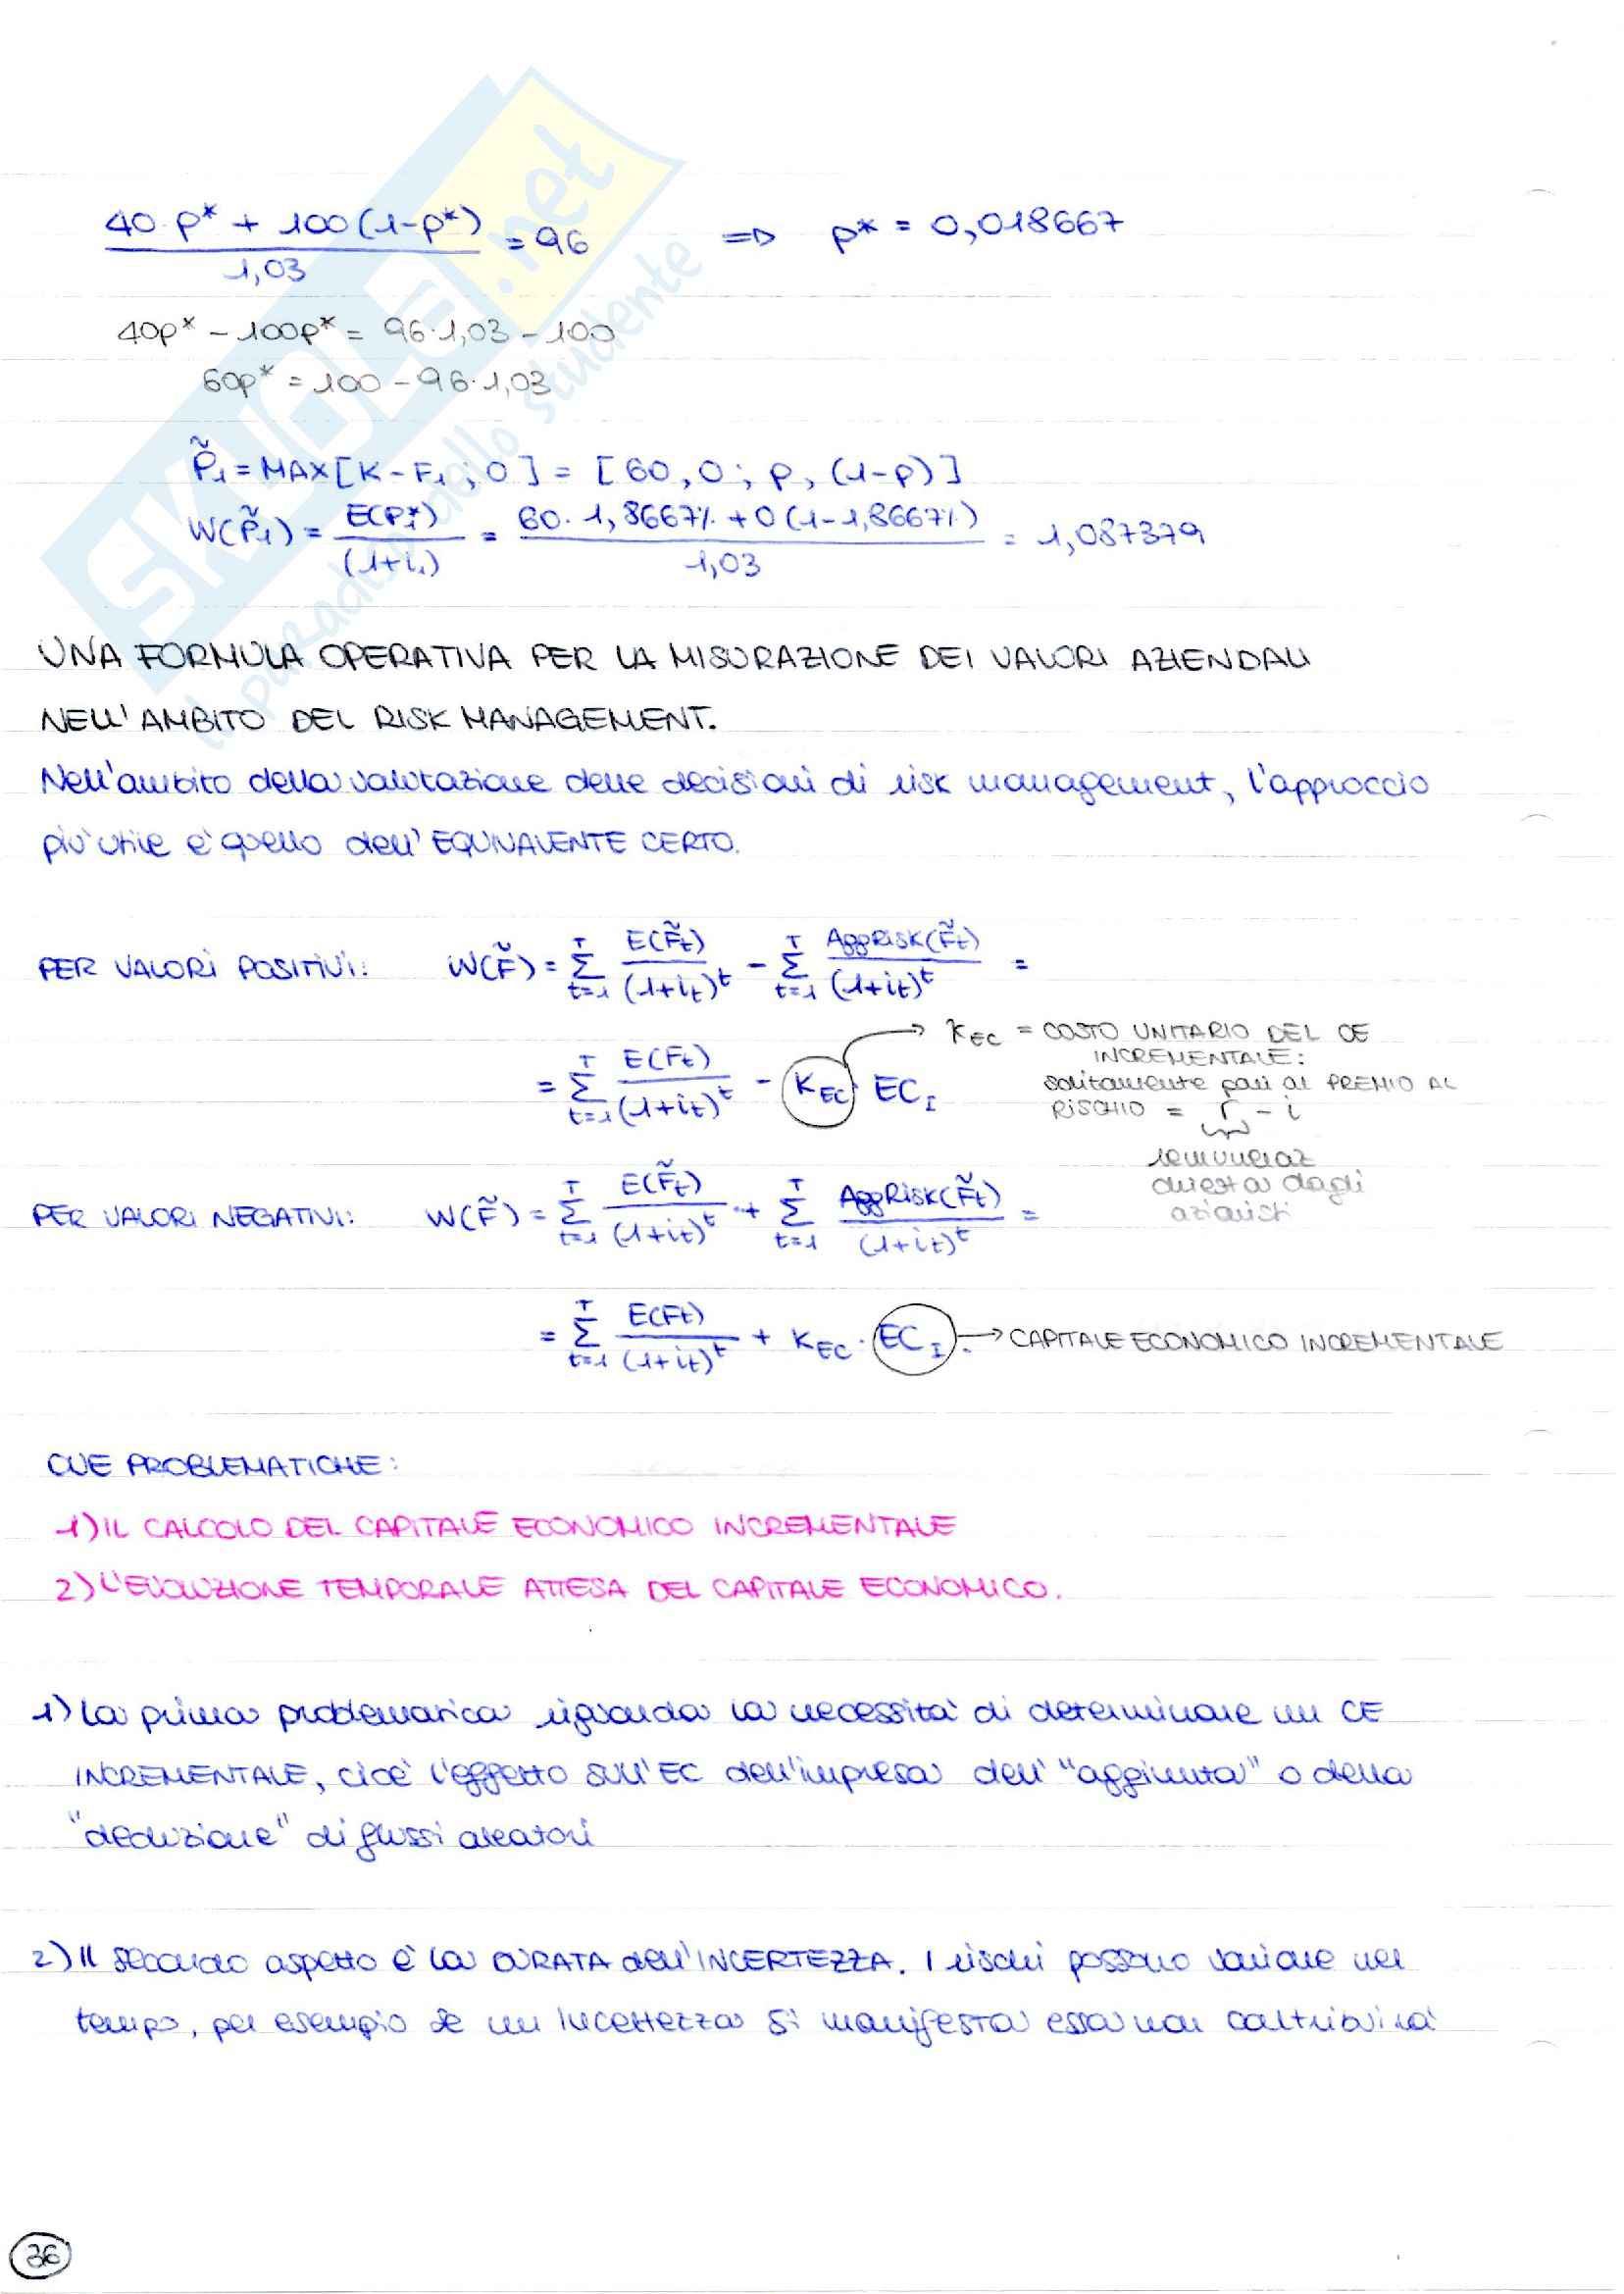 40·p* + 100(1-p*) / 1,03 = 96 => p* = 0,018667
40p* - 100p* = 96·1,03 - 100
60p* = 100 - 96·1,03
P̃₁ = MAX[K - F₁ ; 0] = [60, 0 ; p, (1-p)]
W(P̃₁) = E(P₁*) / (1+i₁) = 60·1,8667% + 0(1-1,8667%) / 1,03 = 1,087379
UNA FORMULA OPERATIVA PER LA MISURAZIONE DEI VALORI AZIENDALI
NELL'AMBITO DEL RISK MANAGEMENT.
Nell'ambito della valutazione delle decisioni di risk management, l'approccio
più utile è quello dell'EQUIVALENTE CERTO.
PER VALORI POSITIVI: W(F̃) = Σ_{t=1}^{T} E(F̃t)/(1+it)^t - Σ_{t=1}^{T} AggRisk(F̃t)/(1+it)^t =
= Σ_{t=1}^{T} E(Ft)/(1+it)^t - K_EC · EC_I
→ K_EC = COSTO UNITARIO DEL CE
INCREMENTALE:
solitamente pari al PREMIO AL
RISCHIO = r - i
remuneraz
chiesta dagli
azionisti
PER VALORI NEGATIVI: W(F̃) = Σ_{t=1}^{T} E(F̃t)/(1+it)^t + Σ_{t=1}^{T} AggRisk(F̃t)/(1+it)^t =
= Σ_{t=1}^{T} E(Ft)/(1+it)^t + K_EC · EC_I. → CAPITALE ECONOMICO INCREMENTALE
DUE PROBLEMATICHE:
1) IL CALCOLO DEL CAPITALE ECONOMICO INCREMENTALE
2) L'EVOLUZIONE TEMPORALE ATTESA DEL CAPITALE ECONOMICO.
1) La prima problematica riguarda la necessità di determinare un CE
INCREMENTALE, cioè l'effetto sull'EC dell'impresa dell' "aggiunta" o della
"deduzione" di flussi aleatori
2) Il secondo aspetto è la DURATA dell'INCERTEZZA. I rischi possono variare nel
tempo, per esempio se un incertezza si manifesta essa non contribuirà
36
SKUOLA.net
il paradiso dello studente